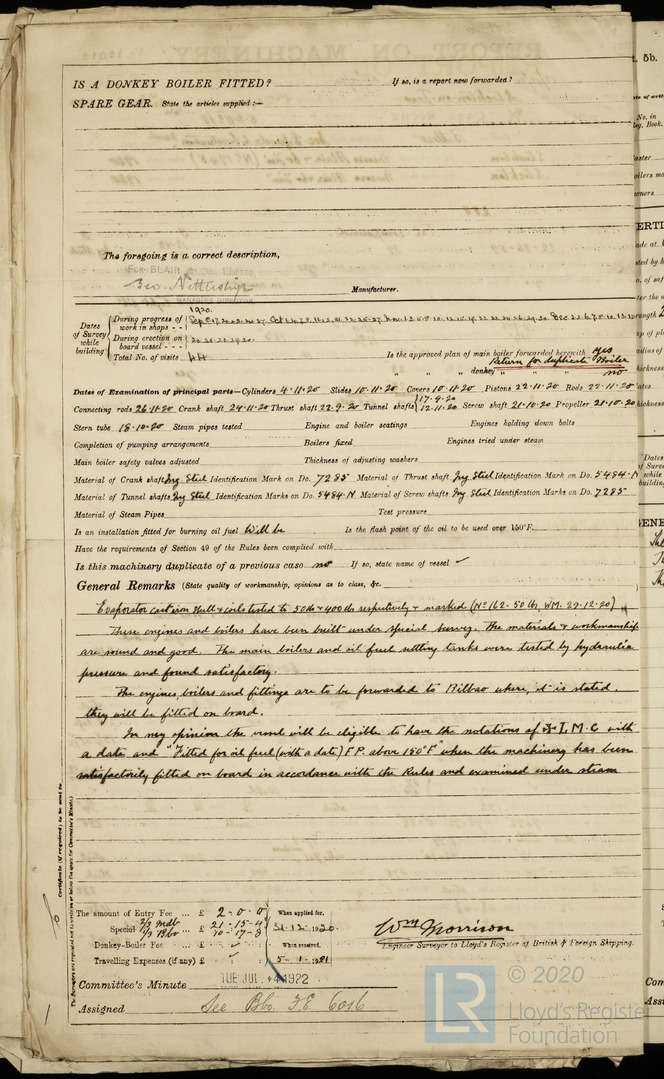 IS A DONKEY BOILER FITTED? If so, is a report now forwarded?
SPARE GEAR. State the articles supplied:—
The foregoing is a correct description,
For BLAIR
Geo. Nettleship Manufacturer.
MANAGING DIRECTOR
1920.
Dates of Survey while building
During progress of work in shops - -
During erection on board vessel - - -
Total No. of visits 44
Is the approved plan of main boiler forwarded herewith yes
Return for duplicate Boiler
" " " donkey " " " no
Dates of Examination of principal parts—Cylinders 4.11.20 Slides 10.11.20 Covers 10.11.20 Pistons 22.11.20 Rods 22.11.20
Connecting rods 26.11.20 Crank shaft 24.11.20 Thrust shaft 22.9.20 Tunnel shafts 17.9.20 12.11.20 Screw shaft 21.10.20 Propeller 21.10.20
Stern tube 18.10.20 Steam pipes tested Engine and boiler seatings Engines holding down bolts
Completion of pumping arrangements Boilers fixed Engines tried under steam
Main boiler safety valves adjusted Thickness of adjusting washers
Material of Crank shaft Ing Steel Identification Mark on Do. 7285 Material of Thrust shaft Ing Steel Identification Mark on Do. 5484.N
Material of Tunnel shafts Ing Steel Identification Marks on Do. 5484.N Material of Screw shafts Ing Steel Identification Marks on Do. 7285
Material of Steam Pipes Test pressure
Is an installation fitted for burning oil fuel Will be Is the flash point of the oil to be used over 150°F.
Have the requirements of Section 49 of the Rules been complied with
Is this machinery duplicate of a previous case no If so, state name of vessel ✓
General Remarks (State quality of workmanship, opinions as to class, &c.
Evaporator cast iron shell & coils tested to 50 lb & 400 lb respectively & marked (No 162 - 50 lb, WM. 29.12.20)
These engines and boilers have been built under special survey. The materials & workmanship
are sound and good. The main boilers and oil fuel settling tanks were tested by hydraulic
pressure and found satisfactory.
The engines, boilers and fittings are to be forwarded to Bilbao where, it is stated,
they will be fitted on board.
In my opinion the vessel will be eligible to have the notations of ✠ L.M.C with
a date and "Fitted for oil fuel (with a date) F.P. above 150°F" when the machinery has been
satisfactorily fitted on board in accordance with the Rules and examined under steam
Certificate (if required) to be sent to
The Surveyors are requested not to write on or below the space for Committee's Minute.
The amount of Entry Fee ... £ 2 - 0 - 0 When applied for,
2/3 Mdb
Special £ 21 - 15 - 4 31.12.1920
1/3 Bbo 10 - 17 - 8
Donkey-Boiler Fee £ When received,
Travelling Expenses (if any) £ 5 - 1 - 1921
Wm Morrison
Engineer Surveyor to Lloyd's Register of British & Foreign Shipping.
Committee's Minute TUE JUL 4 1922
Assigned See Bbo. F.E 6016
LR
© 2020
Lloyd's Register
Foundation